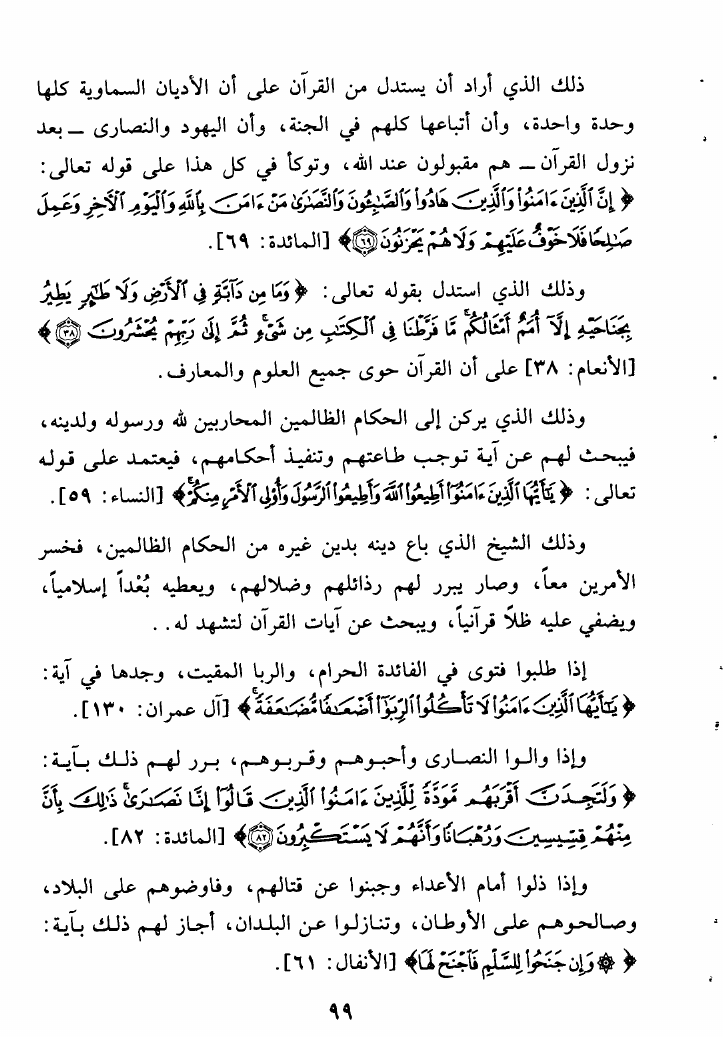 ذلك الذي أراد أن يستدل من القرآن على أن الأديان السماوية كلها
وحدة واحدة، وأن أتباعها كلهم في الجنة، وأن اليهود والنصارى ـ بعد
نزول القرآن ـ هم مقبولون عند الله، وتوكأ في كل هذا على قوله تعالى:
﴿ إِنَّ الَّذِينَ ءَامَنُوا وَالَّذِينَ هَادُوا وَالصَّٰبِـُٔونَ وَالنَّصَٰرَىٰ مَنْ ءَامَنَ بِاللَّهِ وَالْيَوْمِ الْأٓخِرِ وَعَمِلَ
صَٰلِحًا فَلَا خَوْفٌ عَلَيْهِمْ وَلَا هُمْ يَحْزَنُونَ ٦٩﴾ [المائدة: ٦٩].
وذلك الذي استدل بقوله تعالى: ﴿ وَمَا مِن دَآبَّةٍ فِي الْأَرْضِ وَلَا طَٰٓئِرٍ يَطِيرُ
بِجَنَاحَيْهِ إِلَّآ أُمَمٌ أَمْثَالُكُمۚ مَّا فَرَّطْنَا فِي الْكِتَٰبِ مِن شَيْءٍۚ ثُمَّ إِلَىٰ رَبِّهِمْ يُحْشَرُونَ ٣٨ ﴾
[الأنعام: ٣٨] على أن القرآن حوى جميع العلوم والمعارف.
وذلك الذي يركن إلى الحكام الظالمين المحاربين لله ورسوله ولدينه،
فيبحث لهم عن آية توجب طاعتهم وتنفيذ أحكامهم، فيعتمد على قوله
تعالى: ﴿ يَٰٓأَيُّهَا الَّذِينَ ءَامَنُوٓا أَطِيعُوا اللَّهَ وَأَطِيعُوا الرَّسُولَ وَأُوْلِي الْأَمْرِ مِنكُمْۖ﴾ [النساء: ٥٩].
وذلك الشيخ الذي باع دينه بدين غيره من الحكام الظالمين، فخسر
الأمرين معاً، وصار يبرر لهم رذائلهم وضلالهم، ويعطيه بُعْداً إسلامياً،
ويضفي عليه ظلاً قرآنياً، ويبحث عن آيات القرآن لتشهد له..
إذا طلبوا فتوى في الفائدة الحرام، والربا المقيت، وجدها في آية:
﴿ يَٰٓأَيُّهَا الَّذِينَ ءَامَنُوا لَا تَأْكُلُوا الرِّبَوٰٓا أَضْعَٰفًا مُّضَٰعَفَةًۖ ﴾ [آل عمران: ١٣٠].
وإذا والوا النصارى وأحبوهم وقربوهم، برر لهم ذلك بآية:
﴿ وَلَتَجِدَنَّ أَقْرَبَهُم مَّوَدَّةً لِّلَّذِينَ ءَامَنُوا الَّذِينَ قَالُوٓا إِنَّا نَصَٰرَىٰۚ ذَٰلِكَ بِأَنَّ
مِنْهُمْ قِسِّيسِينَ وَرُهْبَانًا وَأَنَّهُمْ لَا يَسْتَكْبِرُونَ ٨٢﴾ [المائدة: ٨٢].
وإذا ذلوا أمام الأعداء وجبنوا عن قتالهم، وفاوضوهم على البلاد،
وصالحوهم على الأوطان، وتنازلوا عن البلدان، أجاز لهم ذلك بآية:
﴿ ۞ وَإِن جَنَحُوا لِلسَّلْمِ فَاجْنَحْ لَهَا﴾ [الأنفال: ٦١].
٩٩